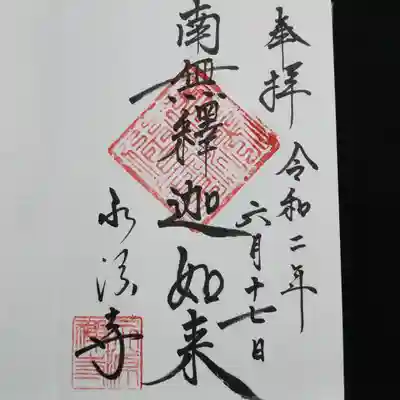 奉拝 令和二年
六月十七日
南無釋迦如来
永源寺